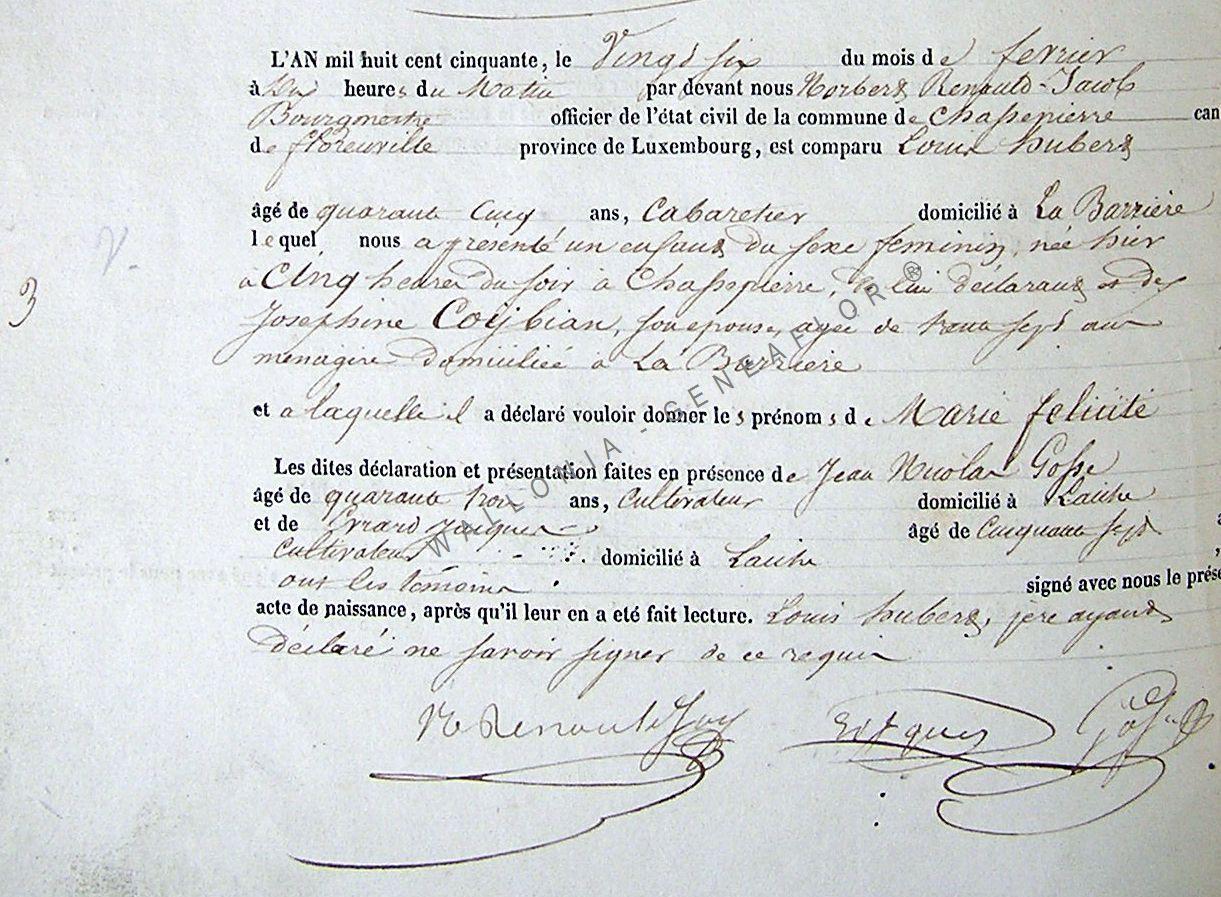 L'AN mil huit cent cinquante, le Vingt six du mois de fevrier
à Dix heures du Matin par devant nous Norbert Renauld-Jacob
Bourgmestre officier de l'état civil de la commune de Chassepierre can
de florenville province de Luxembourg, est comparu Louis hubert
âgé de quarante Cinq ans, Cabaretier domicilié à La Barrière
lequel nous a présenté un enfant du sexe feminin, née hier
à Cinq heures du soir à Chassepierre, de lui déclarant et de
Josephine Coÿbian, son epouse, agee de trente sept ans
menagere domiciliée à La Barriere
et a laquelle il a déclaré vouloir donner les prénoms de Marie felicité
Les dites déclaration et présentation faites en présence de Jean Nicolas Gosse
âgé de quarante trois ans, Cultivateur domicilié à Laiche
et de Errard Jacques âgé de Cinquante sept
Cultivateur domicilié à Laiche
ont les temoins signé avec nous le prése
acte de naissance, après qu'il leur en a eté fait lecture. Louis hubert, père ayant
déclaré ne savoir signer de ce requis
3
N Renauld Jac
WALLONIA - GENEAFLOR ®